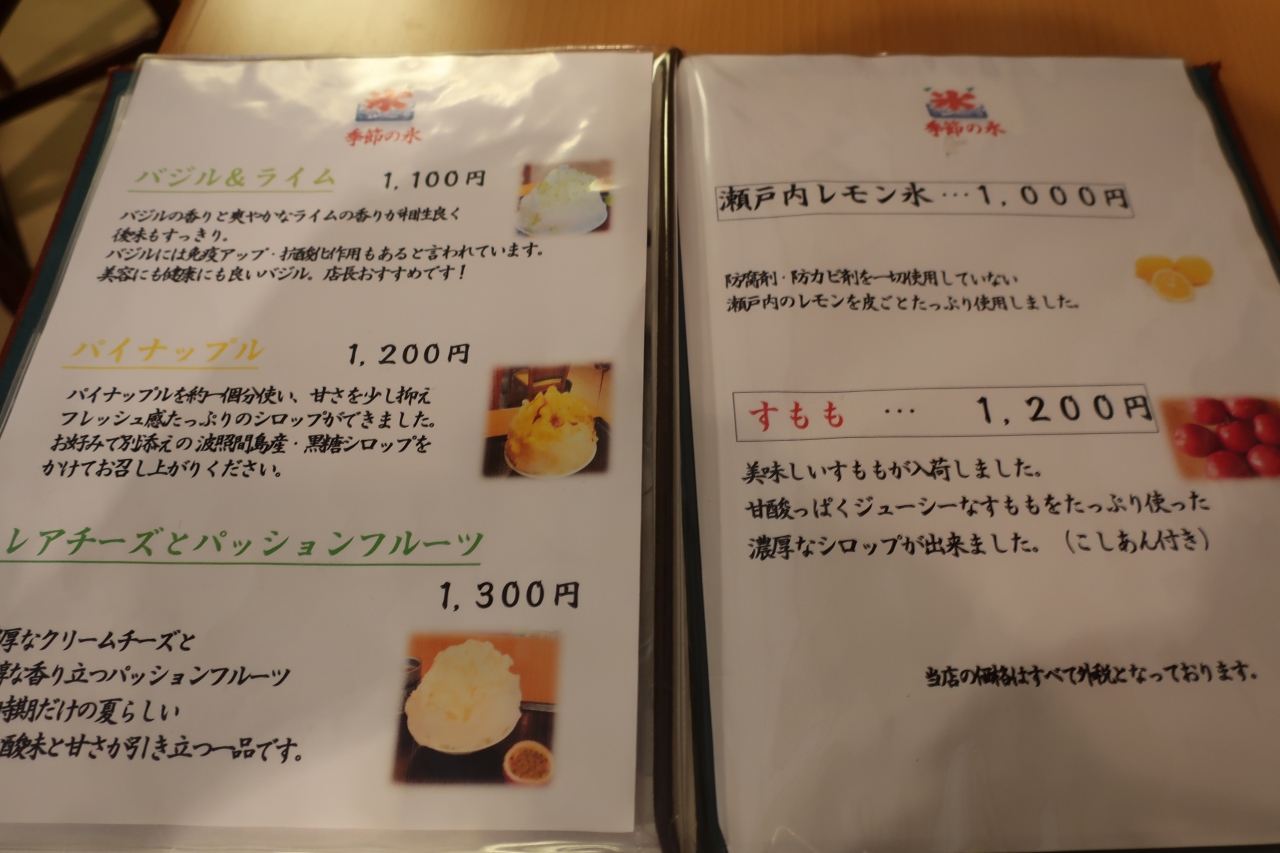 氷
季節の氷
バジル&ライム 1,100円
バジルの香りと爽やかなライムの香りが相性良く
後味もすっきり。
バジルには免疫アップ・抗酸化作用もあると言われています。
美容にも健康にも良いバジル。店長おすすめです！
パイナップル 1,200円
パイナップルを約一個分使い、甘さを少し抑え
フレッシュ感たっぷりのシロップができました。
お好みで別添えの波照間島産・黒糖シロップを
かけてお召し上がりください。
レアチーズとパッションフルーツ
1,300円
厚なクリームチーズと
な香り立つパッションフルーツ
時期だけの夏らしい
酸味と甘さが引き立つ一品です。
氷
季節の氷
瀬戸内レモン氷…1,000円
防腐剤・防カビ剤を一切使用していない
瀬戸内のレモンを皮ごとたっぷり使用しました。
すもも … 1,200円
美味しいすももが入荷しました。
甘酸っぱくジューシーなすももをたっぷり使った
濃厚なシロップが出来ました。（こしあん付き）
当店の価格はすべて外税となっております。